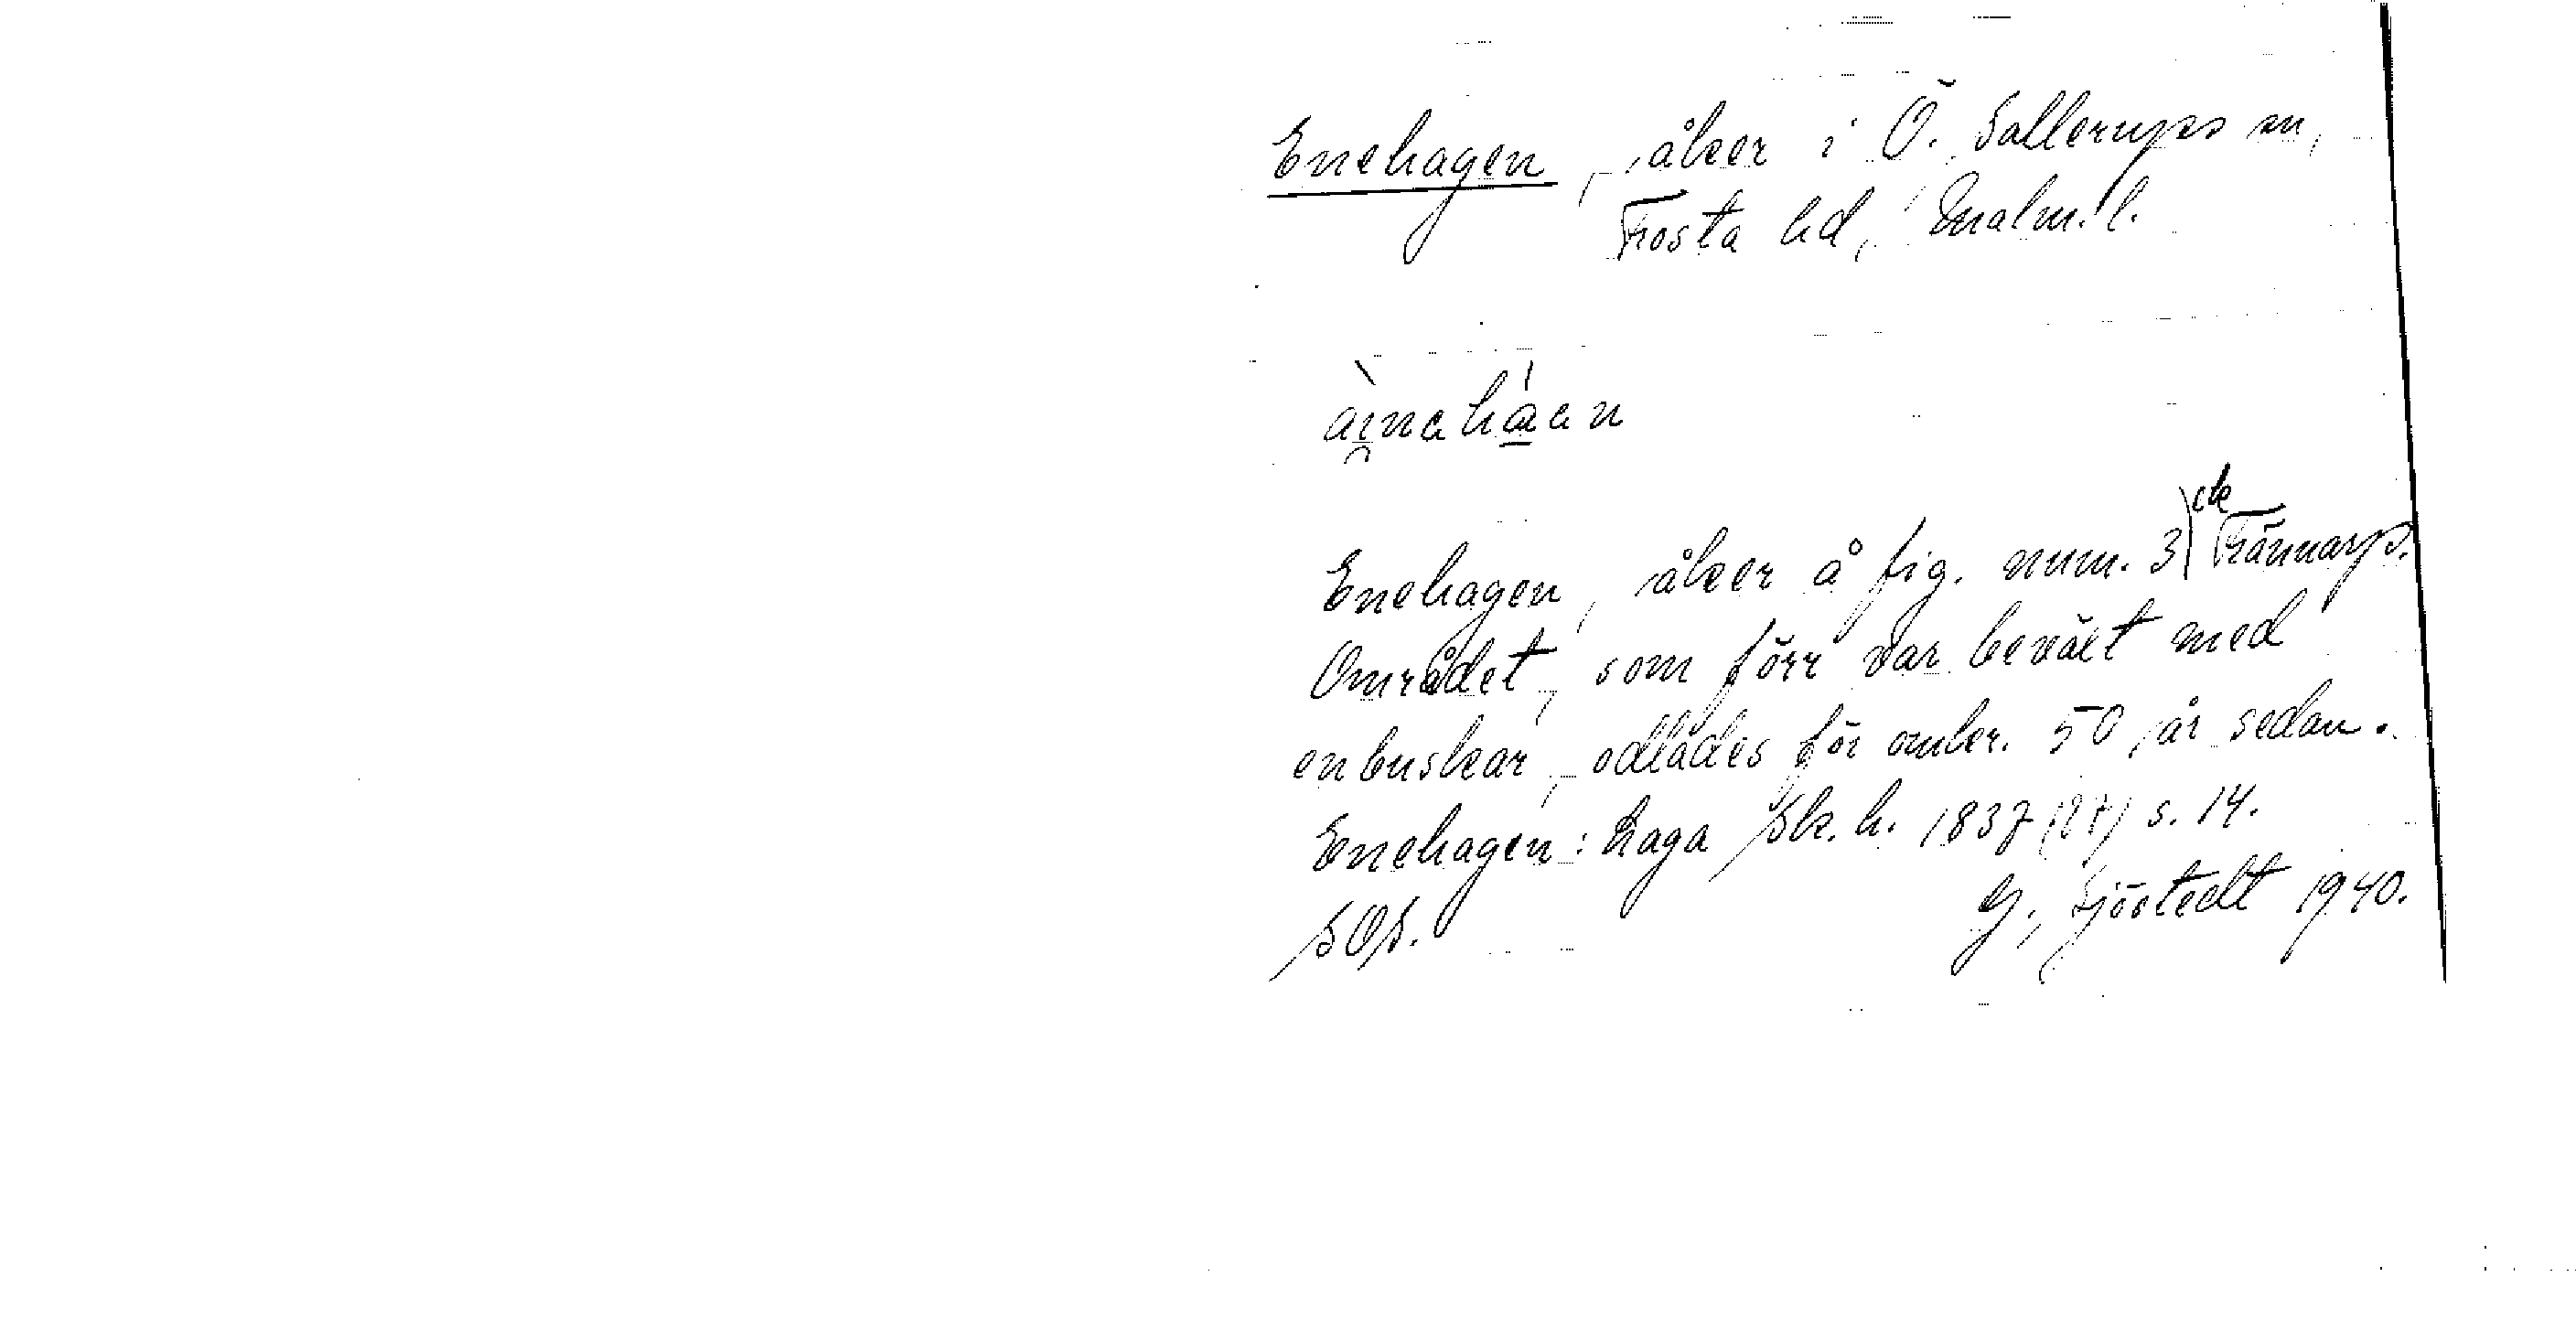 Enehagen, åker i Ö. Sallerups sn,
Frosta hd, Malm. l.
àı̯nəháən
Enehagen, åker å fig. num. 3 Trännarp.
Området, som förr var beväxt med
enbuskar, odlades för omkr. 50 år sedan.
Enehagen: haga Sk. h. 1837 (27) s. 14.
SOS. G. Sjöstedt 1940.